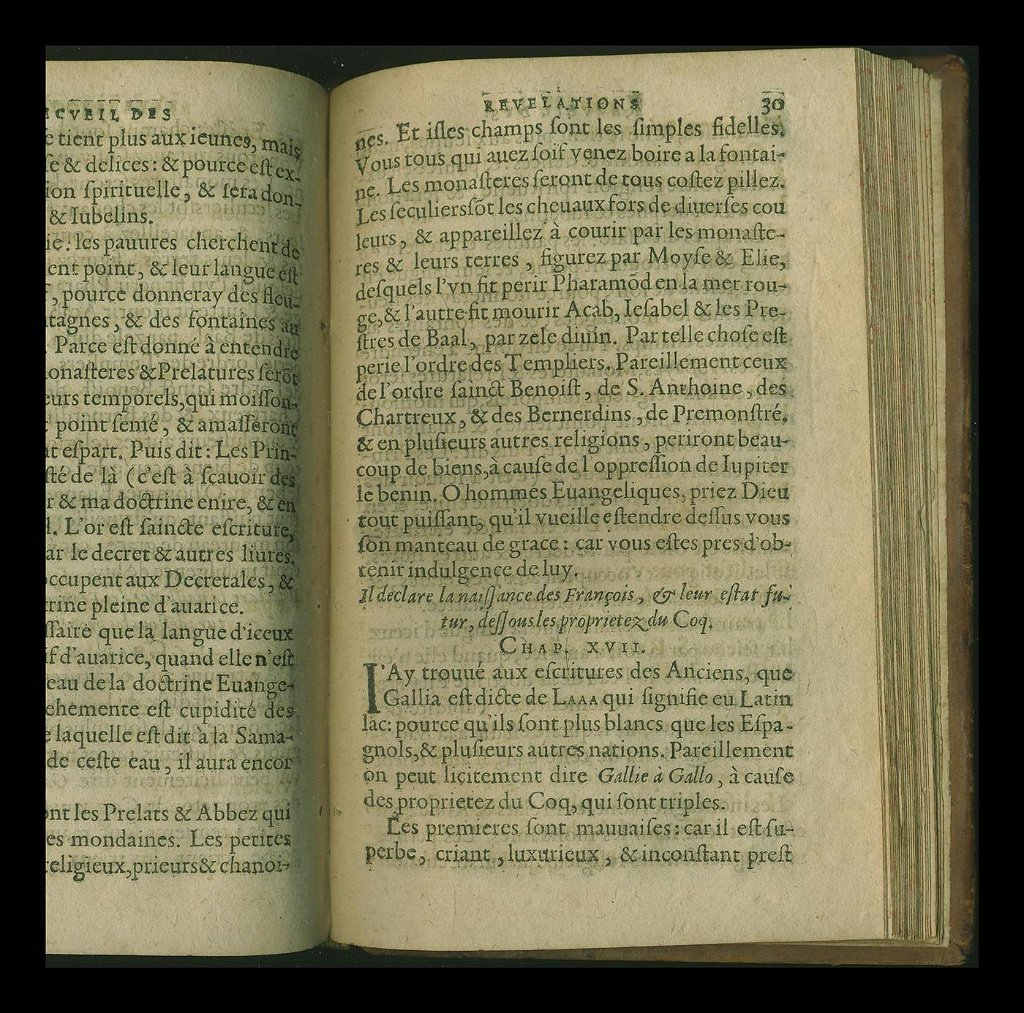 CVEIL DES
e tient plus aux ieunes, mais
ſe & delices: & pource eſt ex-
ion ſpirituelle, & ſera don-
& Iubelins.
ie: les pauures cherchent de
ent point, & leur langue eſt
f, pource donneray des fleu-
tagnes, & des fontaines au
. Parce eſt donné à entendre
onaſteres & Prelatures ſerōt
eurs temporels, qui moiſſon-
point ſemé, & amaſſeront
t eſpart. Puis dit: Les Prin-
ſté de là (c'eſt à ſcauoir des
r & ma doctrine enire, & en
l. L'or eſt ſaincte eſcriture,
ar le decret & autres liures,
occupent aux Decretales, &
rine pleine d'auarice.
ſſaire que la langue d'iceux
f d'auarice, quand elle n'eſt
eau de la doctrine Euange-
ehemente eſt cupidité des
e laquelle eſt dit à la Sama-
de ceſte eau, il aura encor
ont les Prelats & Abbez qui
es mondaines. Les petites
religieux, prieurs & chanoi-
REVELATIONS 30
nes. Et iſles champs ſont les ſimples fidelles.
Vous tous qui auez ſoif venez boire a la fontai-
ne. Les monaſteres ſeront de tous coſtez pillez.
Les ſeculiersſōt les cheuaux fors de diuerſes cou
leurs, & appareillez à courir par les monaſte-
res & leurs terres, figurez par Moyſe & Elie,
deſquels l'vn fit perir Pharamōd en la mer rou-
ge, & l'autre fit mourir Acab, Ieſabel & les Pre-
ſtres de Baal, par zele diuin. Par telle choſe eſt
perie l'ordre des Templiers. Pareillement ceux
de l'ordre ſainct Benoiſt, de S. Anthoine, des
Chartreux, & des Bernerdins, de Premonſtré.
& en pluſieurs autres religions, periront beau-
coup de biens, à cauſe de l'oppreſſion de Iupiter
le benin. O hommes Euangeliques, priez Dieu
tout puiſſant, qu'il vueille eſtendre deſſus vous
ſon manteau de grace: car vous eſtes pres d'ob-
tenir indulgence de luy.
Il declare la naiſſance des François, & leur eſtat fu-
tur, deſſous les proprietez du Coq.
CHAP. XVII.
I'Ay trouué aux eſcritures des Anciens, que
Gallia eſt dicte de LAAA qui ſignifie eu Latin
lac: pource qu'ils ſont plus blancs que les Eſpa-
gnols, & pluſieurs autres nations. Pareillement
on peut licitement dire Gallie à Gallo, à cauſe
des proprietez du Coq, qui ſont triples.
Les premieres ſont mauuaiſes: car il eſt ſu-
perbe, criant, luxurieux, & inconſtant preſt